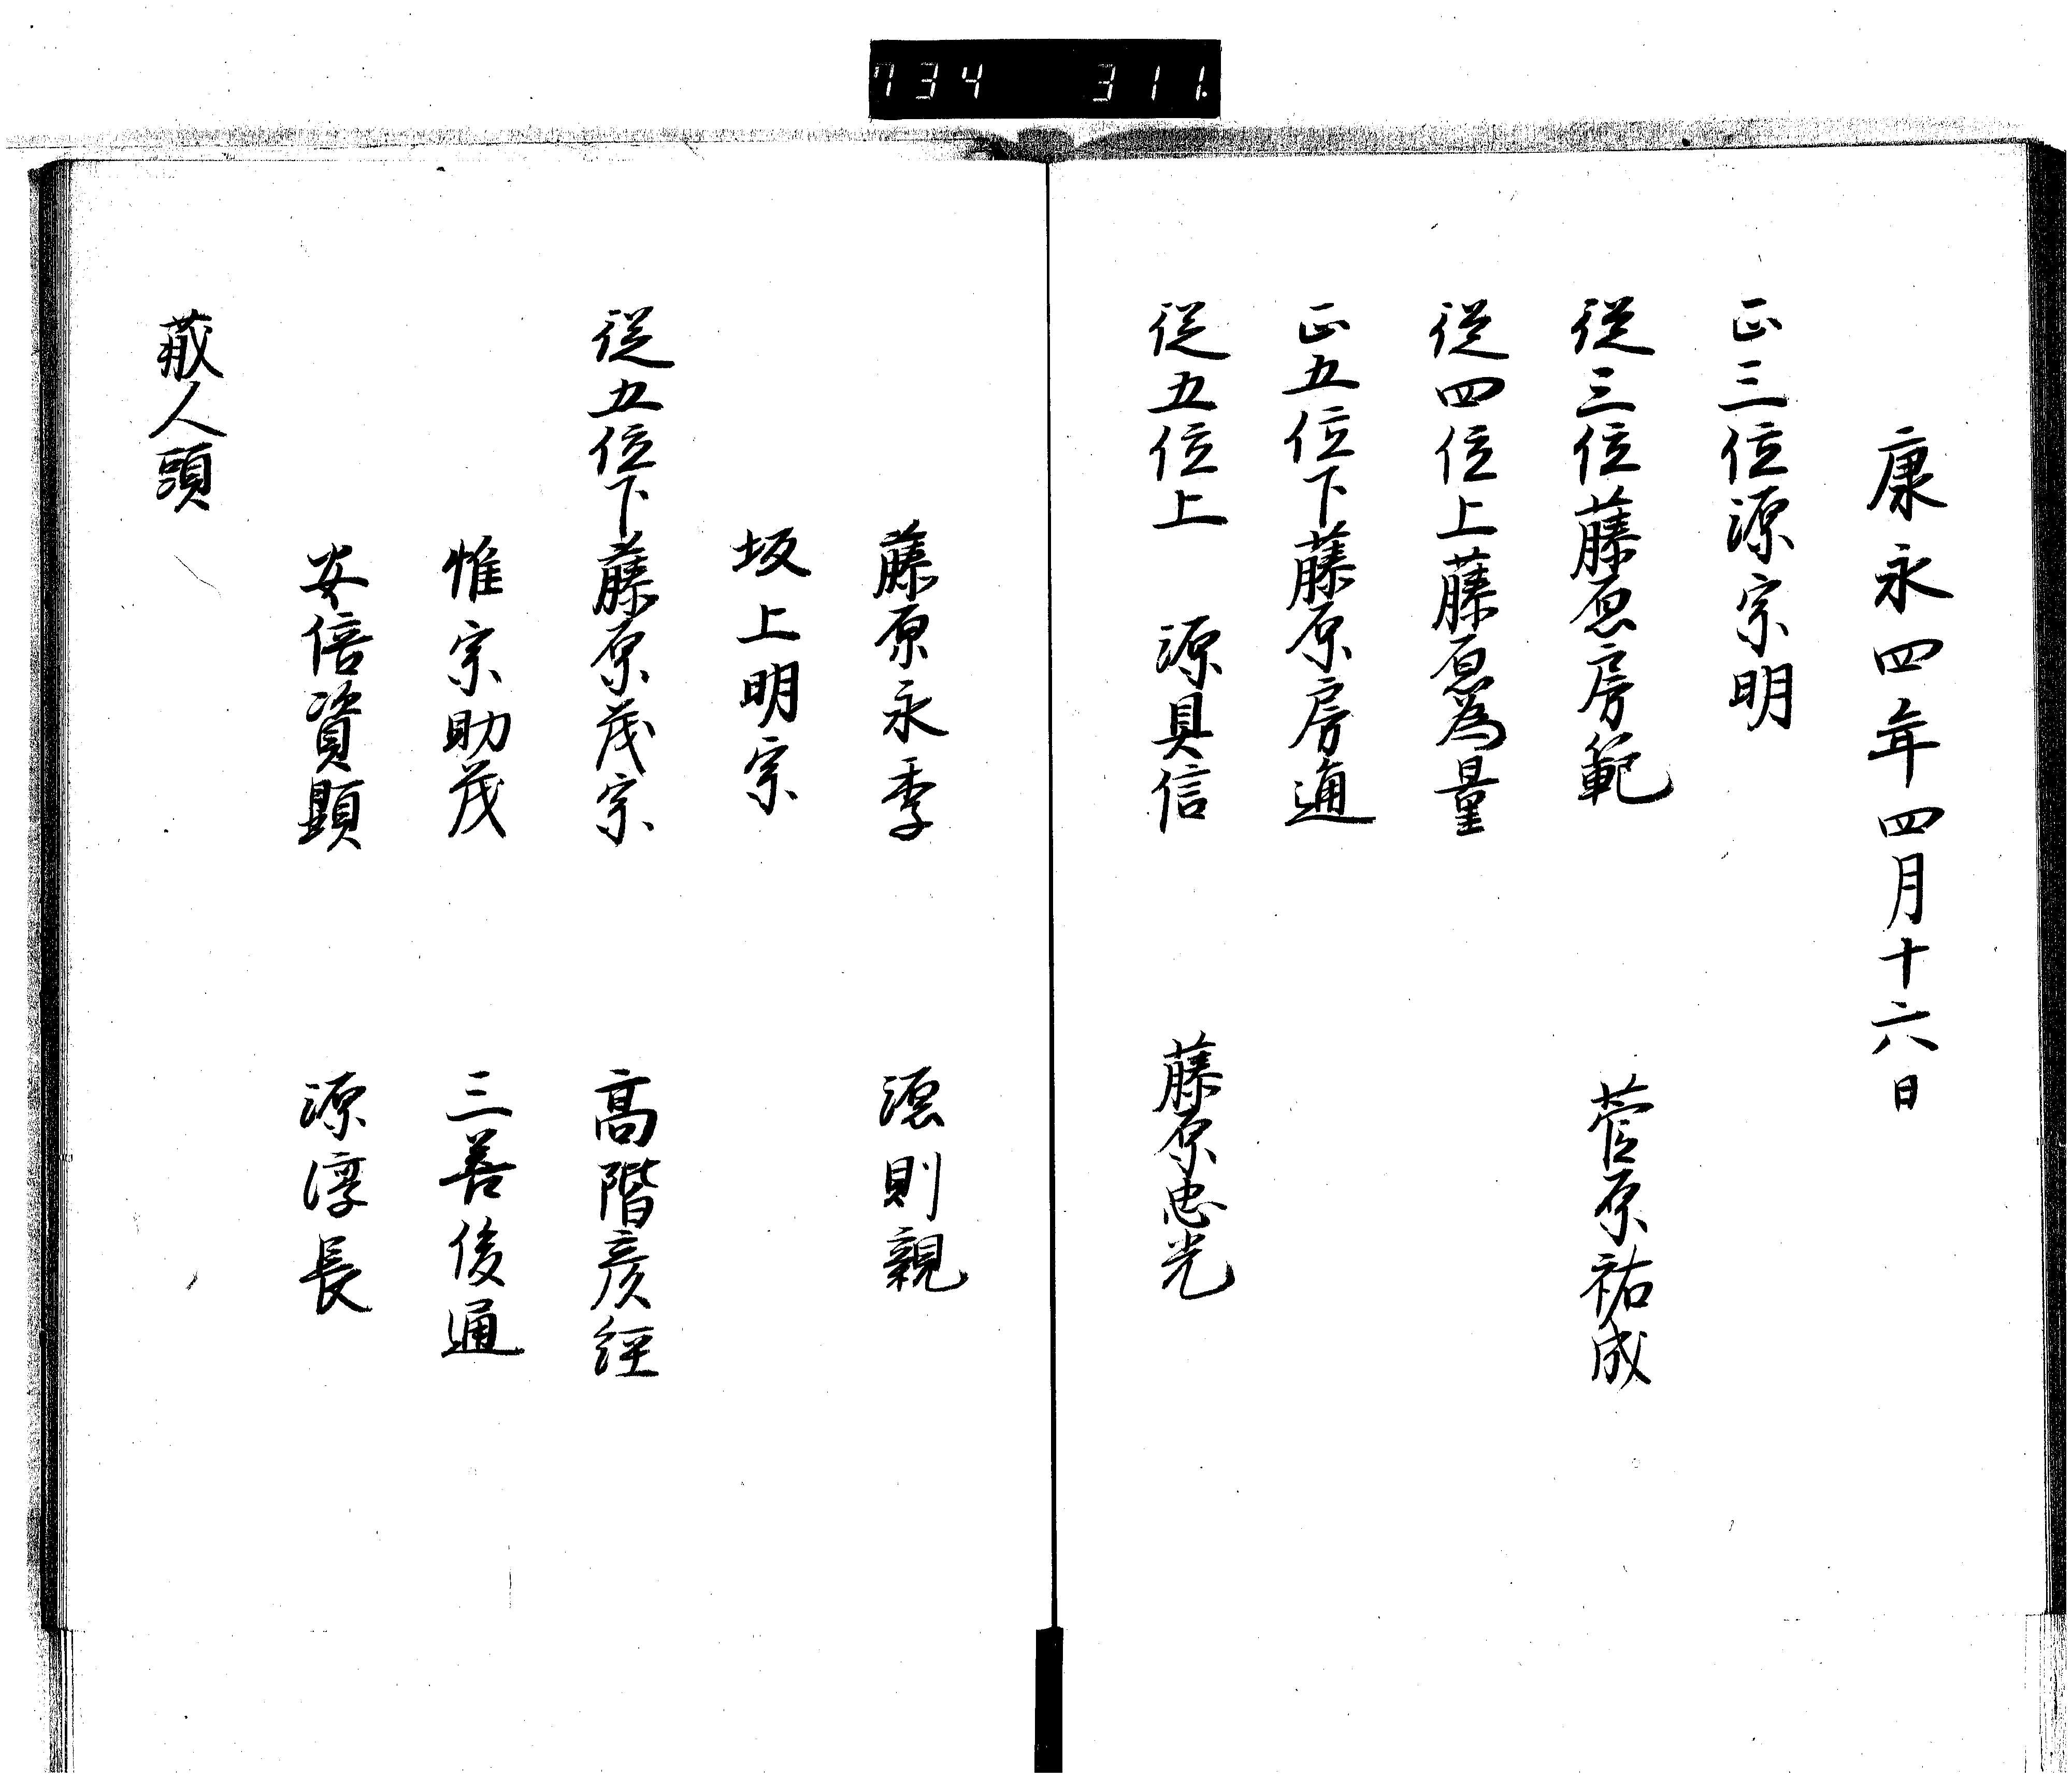 734 311
康永四年四月十六日
正三位源宗明
從三位藤原房範 菅原祐成
從四位上藤原為量
正五位下藤原房通
從五位上 源具信 藤原忠光
藤原永季 源則親
坂上明宗
從五位下藤原茂宗 高階彦経
惟宗助茂 三善俊通
安倍資顕 源淳長
蔵人頭